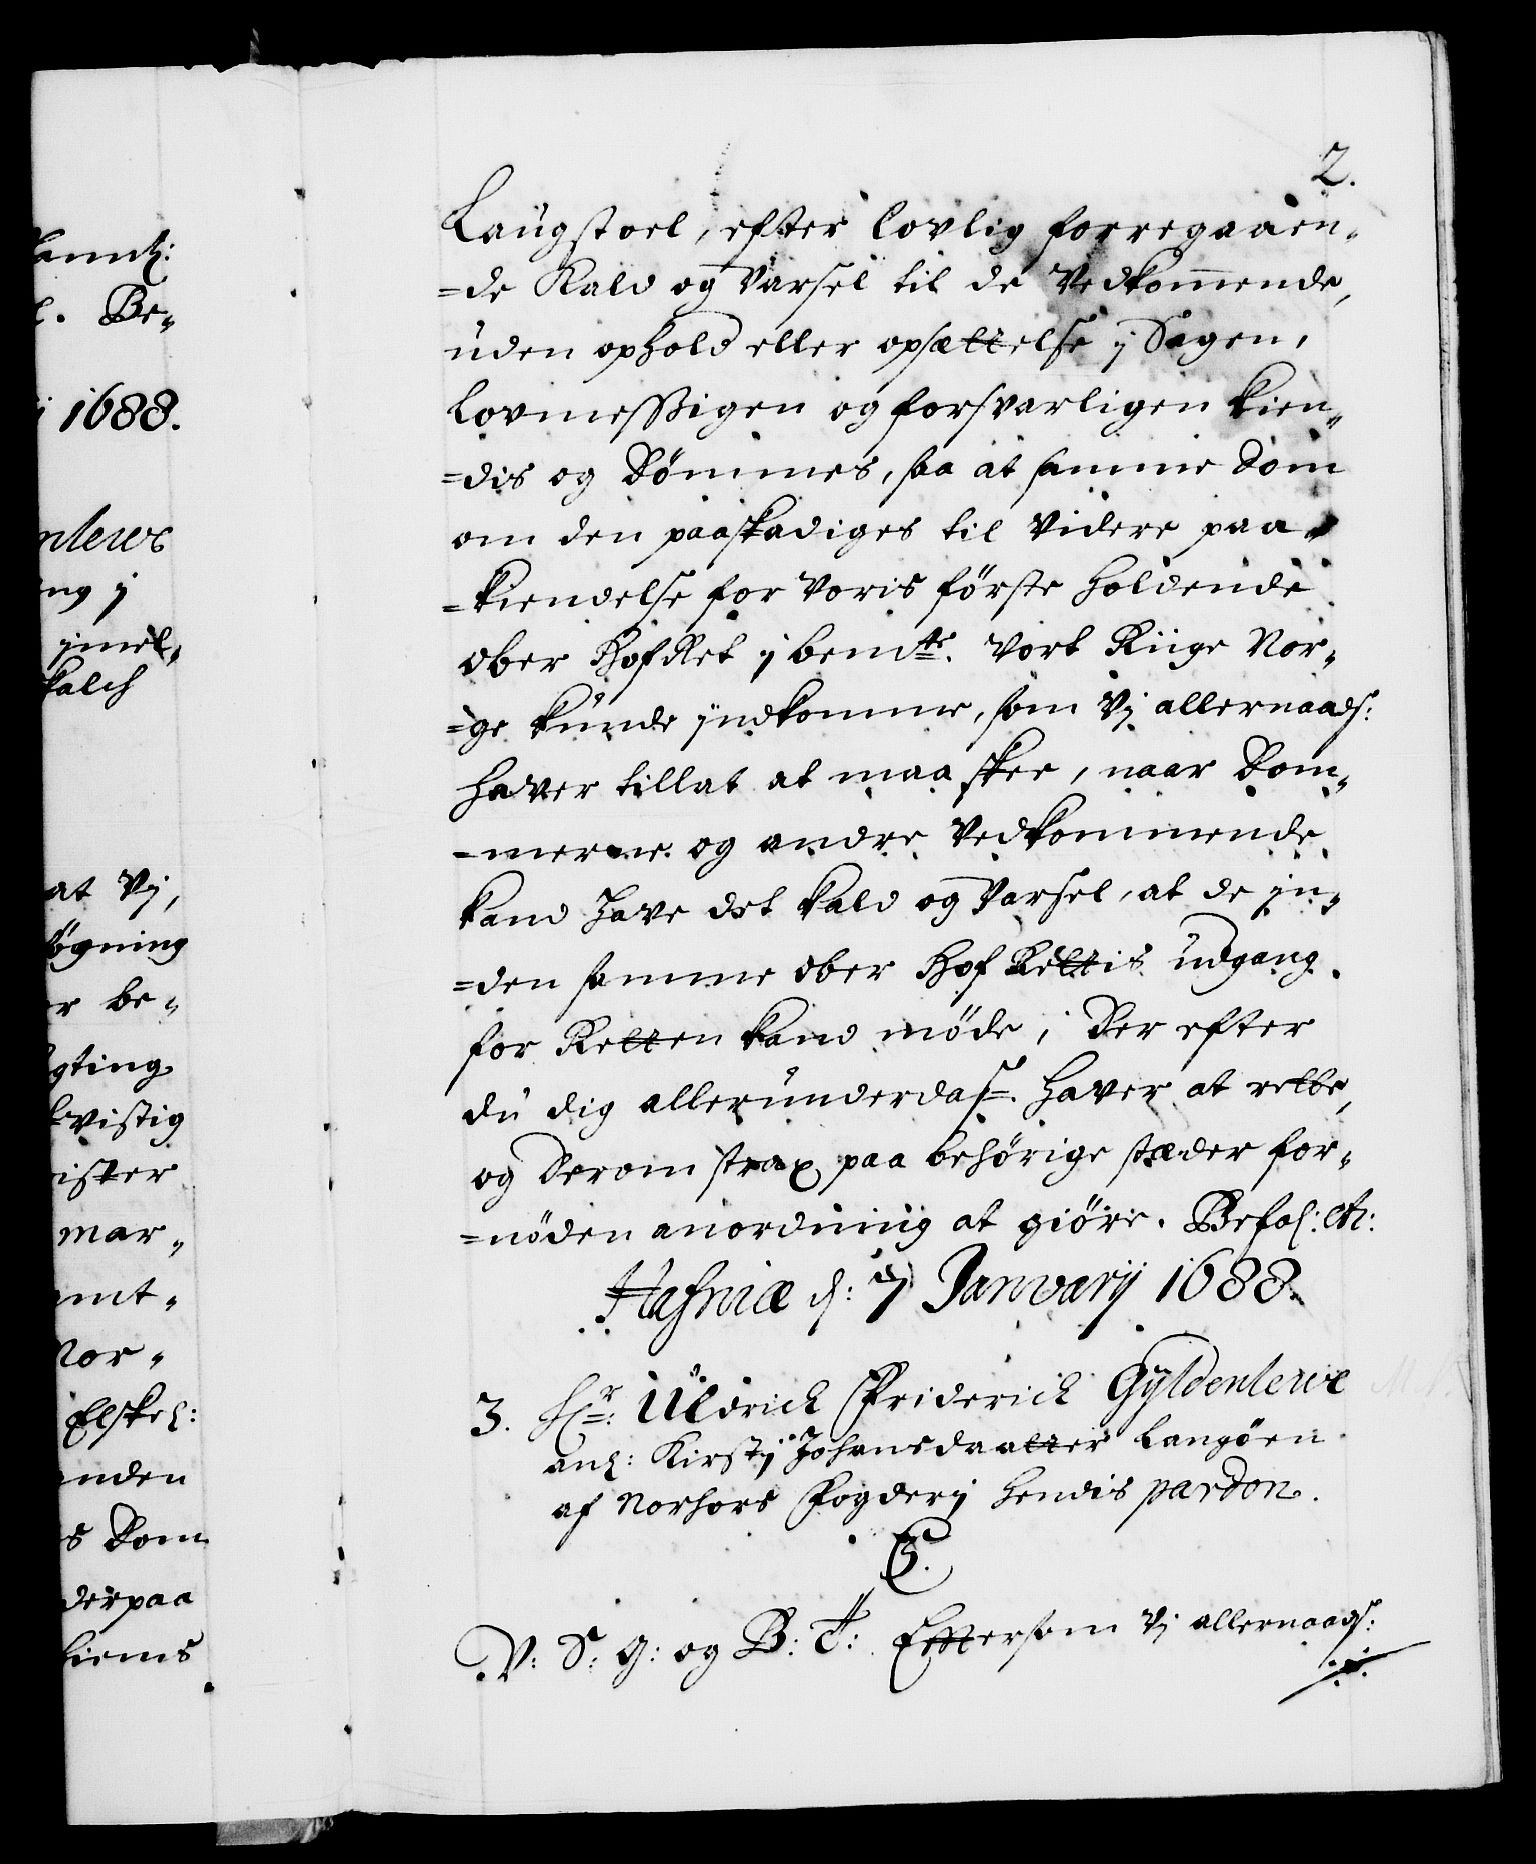 2.
Laügstoel, efter lovlig forregaaen-
=de Kald og Varsel til de Vedkommende,
üden ophold eller opsættelse j Sagen,
Lovmessigen og forsvarligen kien-
=dis og Dömmes, saa at samme Dom
om den paaskadiges til Videre paa-
=kiendelse for Voris förste holdende
Ober HofRet j bemte. Vort Riige Nor-
=ge künde jndkomme, som Vj allernaads:
haver tillat at maa skee, naar Dom-
=merne og andre Vedkommende
kand have det Kald og Varsel, at de jn-
=den samme Ober Hof Rettis üdgang
for Retten kand möde, Der efter
dü dig alleründerdas. haver at rette,
og Derom strax paa behörige stæder for-
=nöden anordning at giöre. Befal: etc:
Hafniæ d: 7 Janvarij 1688.
3. Hr: Üldrich Friderich Gyldenlewe
anl: Kirstj Johansdaatter Langöen
af Norhors Fogderj hendis pardon.
C5.
V: S: G: og B: T: Eftersom Vj allernaads:
kannd:
l. Be-
j 1688.
nlewe
ng j
jmel-
at Vj,
sögning
r be-
gting
lvistig
ister
mar-
mt-
Nor-
Elskel:
anden
s Dom
derpaa
hiems